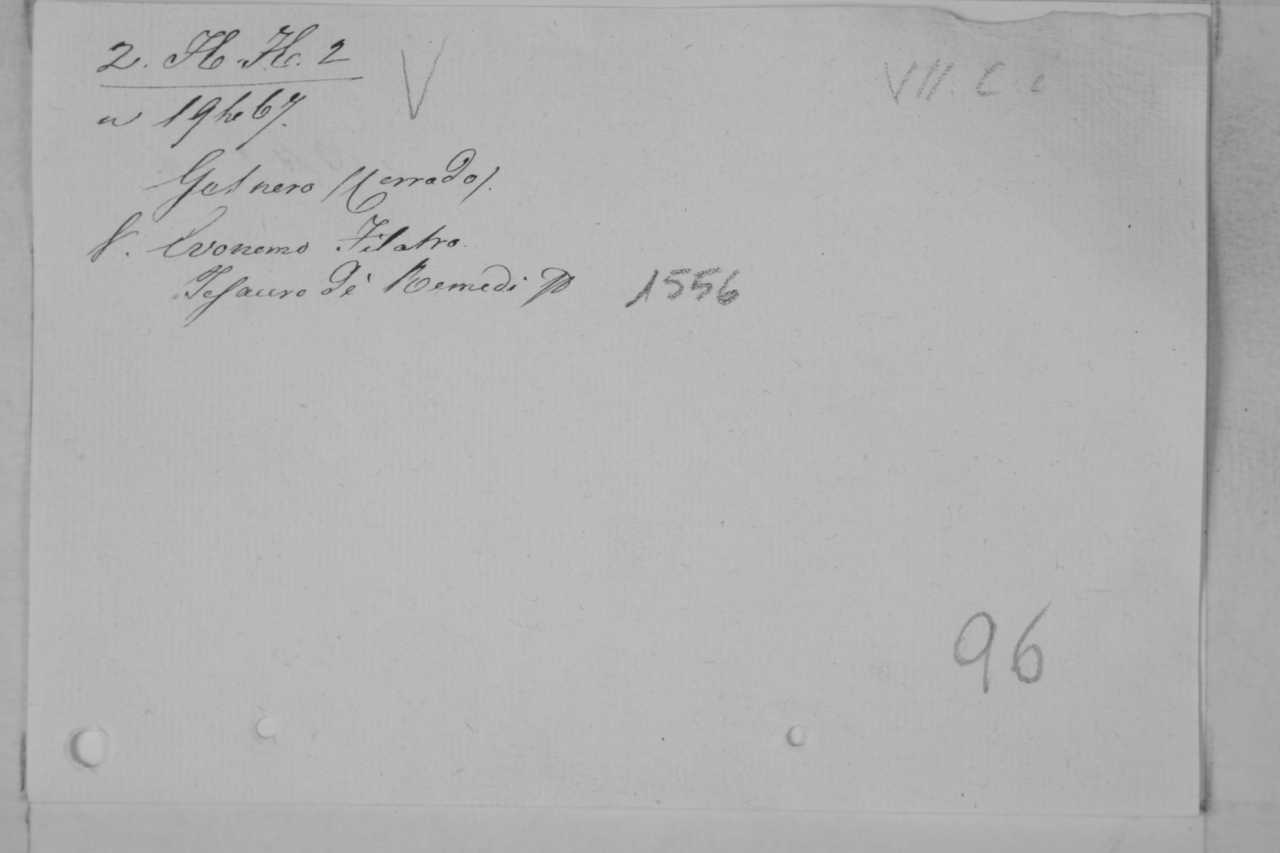 2. H. H. 2 V VII. C. c
Gesnero (Corrado).
V. Evonemo Filatro.
Tesauro de' Remedi 1556
96